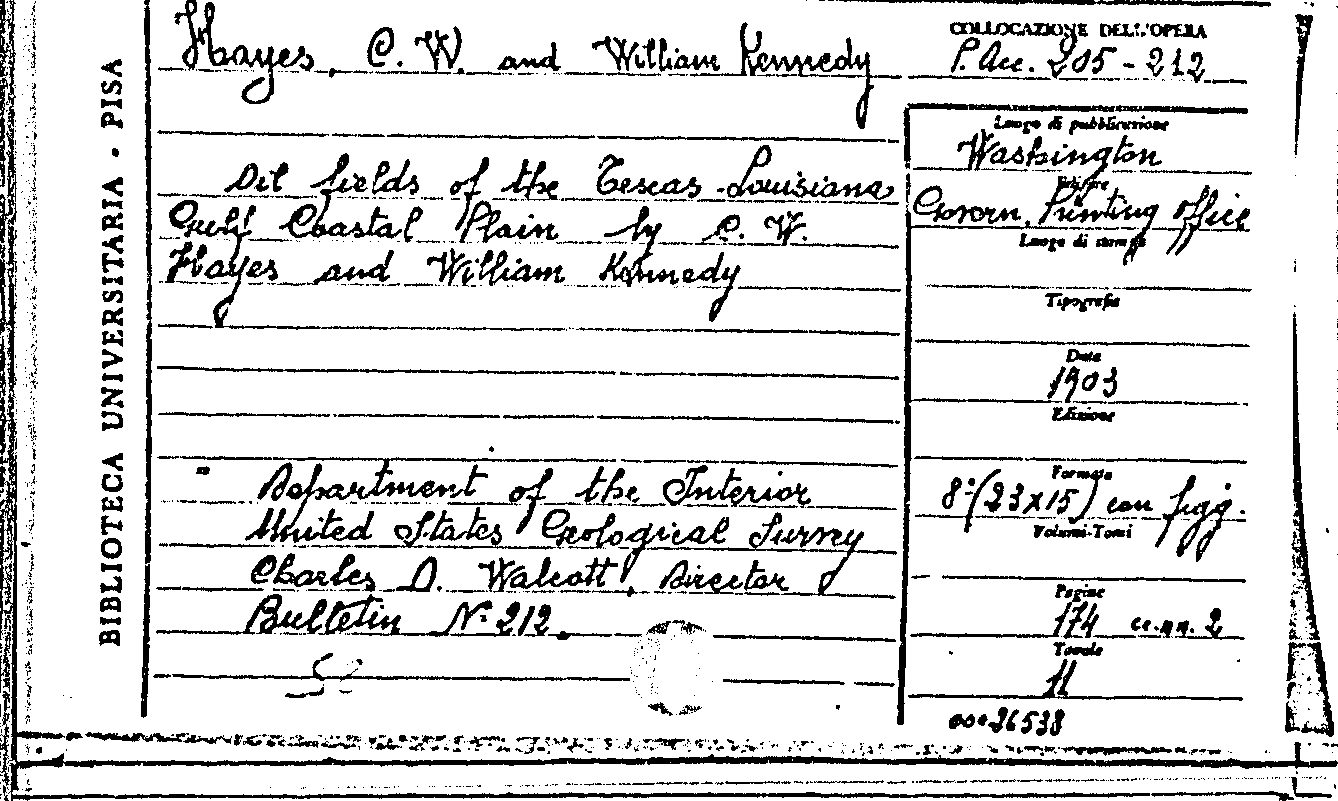 Hayes, C. W. and William Kennedy
COLLOCAZIONE DELL'OPERA
P. Acc. 205 - 212
BIBLIOTECA UNIVERSITARIA - PISA
Oil fields of the Texas-Louisiana
Gulf Coastal Plain by C. W.
Hayes and William Kennedy
" Department of the Interior
United States Geological Survey
Charles D. Walcott, Director
Bulletin N° 212.
Luogo di pubblicazione
Washington
Editore
Govern. Printing Office
Luogo di stampa
Tipografia
Data
1903
Edizione
Formato
8° (23x15) con figg.
Volumi-Tomi
Pagine
174 cc.nn. 2
Tavole
11
26538